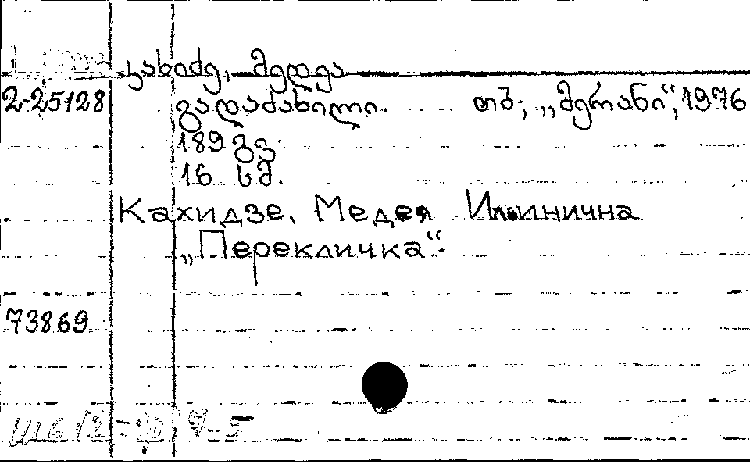 კახიძე, მედეა
2-25128 გადაძახილი. თბ; „მერანი“, 1976
189 გვ
16 სმ.
Кахидзе, Медея Ильинична
„Перекличка“.
73869